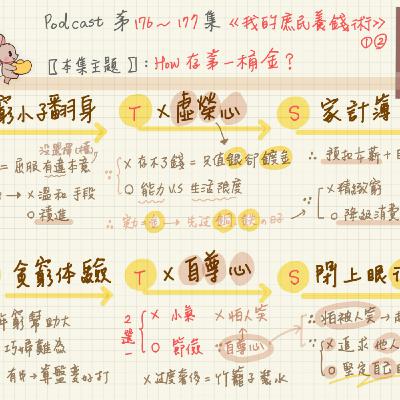 Podcast 第176～177集《我的庶民養錢術》
①②
【本集主題】：How 存第一桶金？
窮小子翻身 T × 虛榮心 S 家計簿
沒覺得(痛)
= 屈服有違本意
→ × 溫和手段
○ 積進
∵ × 存不了錢 = 只值銀卻鍍金
○ 能力 V.S 生活限度
∴ 預扣本薪 +
∵ × 精緻窮
○ 降級消費
貧窮體驗 T × 自尊心 S 閉上眼
年窮幫助大
巧婦難為
有中 → 算盤要好打
2選一 × 小氣
○ 節儉
× 怕人笑
∵ 自尊心
× 過度奢侈 = 竹籠子裝水
∴ 怕被人笑 →
∵ × 追求他人
○ 堅定自己